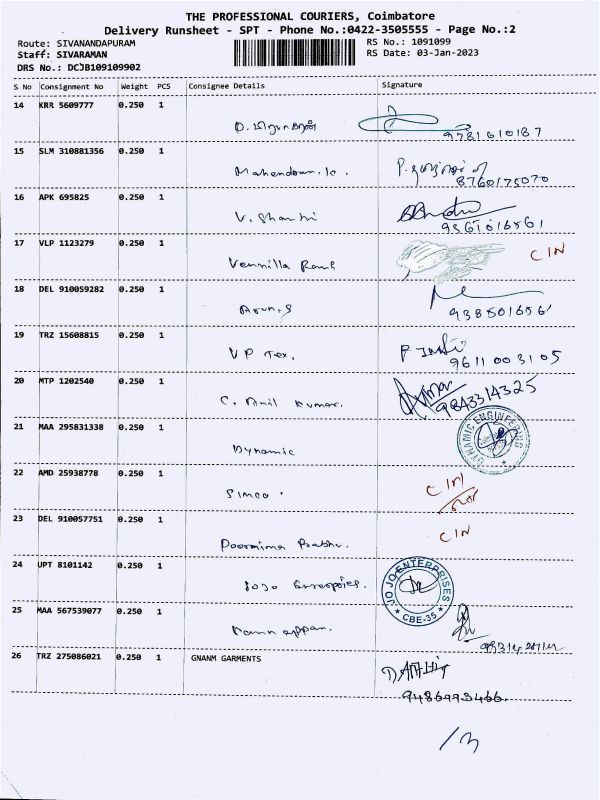 THE PROFESSIONAL COURIERS, Coimbatore
Delivery Runsheet - SPT - Phone No.:0422-3505555 - Page No.:2
Route: SIVANANDAPURAM
Staff: SIVARAMAN
DRS No.: DCJB109109902
RS No.: 1091099
RS Date: 03-Jan-2023
S No Consignment No Weight PCS Consignee Details Signature
14 KRR 5609777 0.250 1
9781610187
15 SLM 310881356 0.250 1
Mahendran.k.
8760175070
16 APK 695825 0.250 1
V. Shanthi
9361016561
17 VLP 1123279 0.250 1
Vennilla CIN
18 DEL 910059282 0.250 1
Arun.S
19 TRZ 15608815 0.250 1
V P Tex.
9611003105
20 MTP 1202540 0.250 1
C. Anil Kumar. Kumar
9843314325
21 MAA 295831338 0.250 1
Dynamic
DYNAMIC ENGINEERING
22 AMD 25938778 0.250 1
Simco. CIN
23 DEL 910057751 0.250 1
Poornima Prabhu. CIN
24 UPT 8101142 0.250 1
JoJo
JO JO ENTERPRISES
CBE-35
25 MAA 567539077 0.250 1
Kannappan.
26 TRZ 275086021 0.250 1 GNANM GARMENTS
9486993466
/3